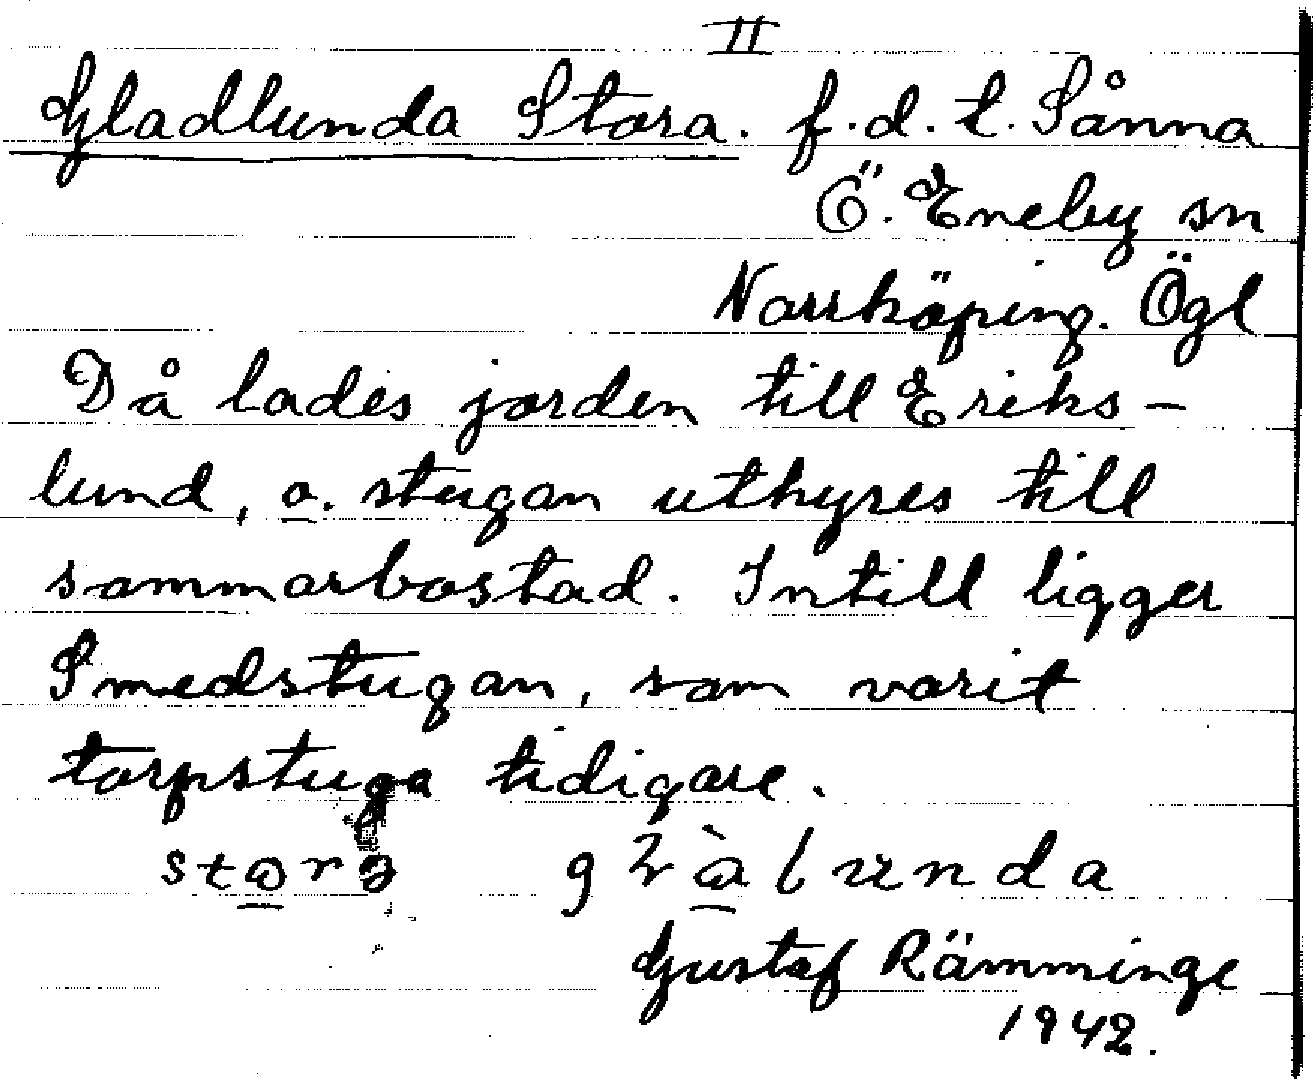 II
Gladlunda Stora. f.d.t. Sånna
Ö. Eneby sn
Norrköping. Ögl
Då lades jorden till Eriks-
lund, o. stugan uthyres till
sommarbostad. Intill ligger
Smedstugan, som varit
torpstuga tidigare.
Gustaf Rämminge
1942.